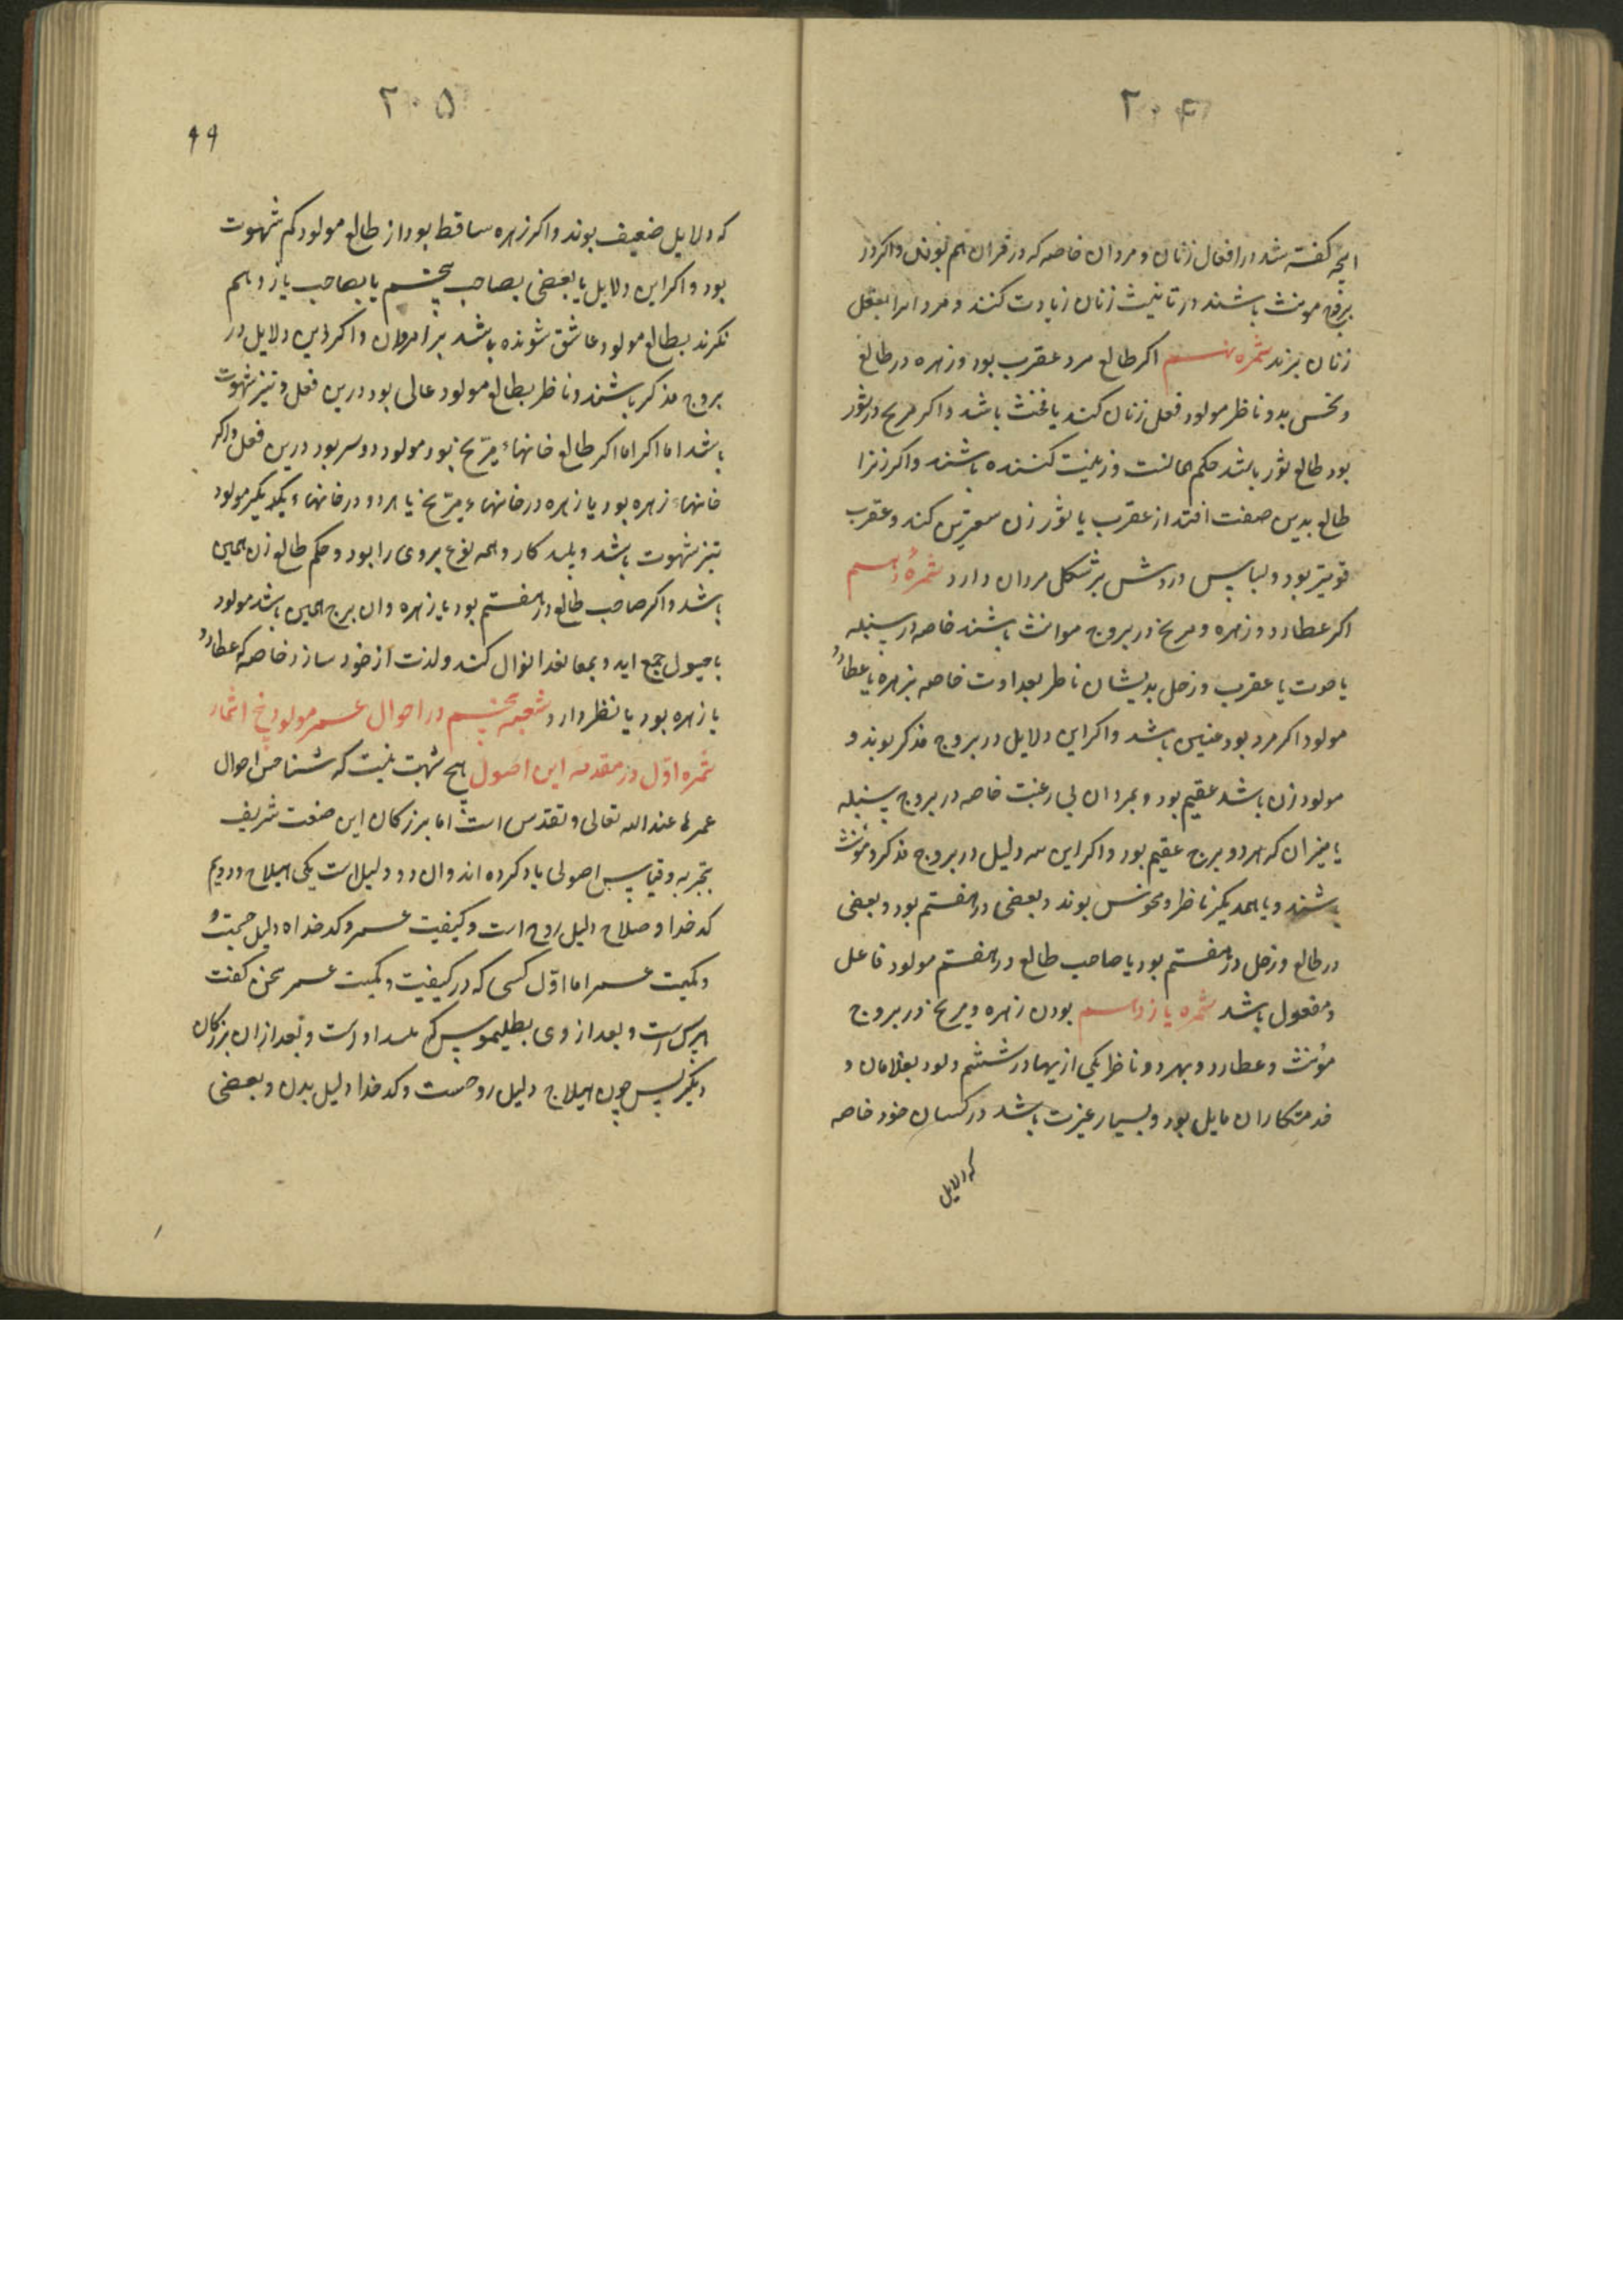 ۲۰۴
انچه کفته شد در افعال زنان و مردان خاصه که در قران هم بوند واکر در
بروج مونث باشند در تانیث زنان زیادت کنند و مردانرا بفعل
زنان برند ثمره نهم اکر طالع مرد عقرب بود و زهره در طالع
و نحس بدو ناظر مولود فعل زنان کند یا مخنث باشد واکر مریخ در ثور
بود طالع ثور باشد حکم همانست و زینت کننده باشند واکر زنرا
طالع بدین صفت افتد از عقرب یا ثور زن کند و عقرب
قویتر بود و لباس و روش بر شکل مردان دارد ثمره دهم
اکر عطارد و زهره و مریخ در بروج مونث باشند خاصه در سنبله
یا حوت یا عقرب و زحل بدیشان ناظر بعداوت خاصه بزهره یا عطارد
مولود اکر مرد بود عنین باشد واکر این دلایل در بروج مذکر بوند و
مولود زن باشد عقیم بود و بمردان بی رغبت خاصه در بروج سنبله
یا میزان که هر دو برج عقیم بود واکر این سه دلیل در بروج مذکر و مؤنث
باشند و با همدیکر ناظر و منحوس بوند و بعضی در هفتم بود و بعضی
در طالع و زحل در هفتم بود یا صاحب طالع در هفتم مولود فاعل
و مفعول باشد ثمره یازدهم بودن زهره و مریخ در بروج
مؤنث و عطارد بهر دو ناظر یکی ازیها در ششم دلود بغلامان و
خدمتکاران مایل بود و بسیار غیرت باشد در کسان خود خاصه
که دلایل
۲۰۵
۹۹
که دلایل ضعیف بوند واکر زهره ساقط بود از طالع مولود کم شهوت
بود واکر این دلایل یا بعضی بصاحب پنجم یا بصاحب یازدهم
نکرند بطالع مولود عاشق شونده باشد بر امردان واکر این دلایل در
بروج مذکر باشند و ناظر بطالع مولود عالی بود درین فعل و تیز شهوت
باشد اما اکر اما اکر طالع خانهاء مریخ بود مولود دوسر بود درین فعل واکر
خانهاء زهره بود یا زهره در خانهاء مریخ یا هر دو در خانهاء یکدیکر مولود
تیز شهوت باشد و پلید کار و همه نوع بروی روا بود و حکم طالع زن همین
باشد واکر صاحب طالع در هفتم بود با زهره وان برج همین باشد مولود
با جمع اید و انزال کند و لذت از خود سازد خاصه که عطارد
با زهره بود یا نظر دارد شعبه پنجم در احوال عمر مولود نج اثمار
ثمره اوّل در مقدمه این اصول هیچ شبهت نیست که شناختن احوال
عمرها عند الله تعالی و تقدس است اما بزرکان این صنعت شریف
بتجربه و قیاس اصولی یاد کرده اند وان دو دلیل است یکی هیلاج و دویم
کدخدا و هیلاج دلیل روح است و کیفیت عمر و کدخداه دلیل جسمت
و کمیت عمر اما اوّل کسی که در کیفیت و کمیت عمر سخن کفت
هرمس است و بعد از وی بطلیموس که اوست و بعد ازان بزرکان
دیکر پس چون هیلاج دلیل روحست و کدخدا دلیل بدن و بعضی